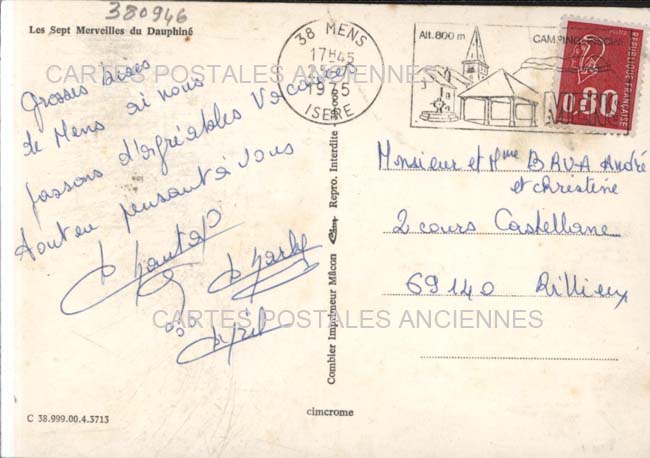 380946
Les Sept Merveilles du Dauphiné
Grosses bises
de Mens où nous
passons d'agréables vacances
tout en pensant à vous
Chantal
Charly
Cyril
C 38.999.00.4.3713
38 MENS
17H45
1975
ISERE
Alt. 800 m
CAMPING
REPUBLIQUE FRANÇAISE
0.80
Combier Imprimeur Mâcon Repro. Interdite
cimcrome
Monsieur et Mme BAVA André
et christine
2 cours Castellane
69140 Rillieux
CARTES POSTALES ANCIENNES
CARTES POSTALES ANCIENNES